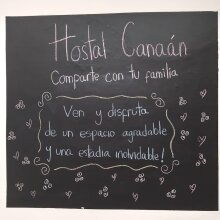 Hostal Canaán
Comparte con tu familia
Ven y disfruta
de un espacio agradable
y una estadia inolvidable!